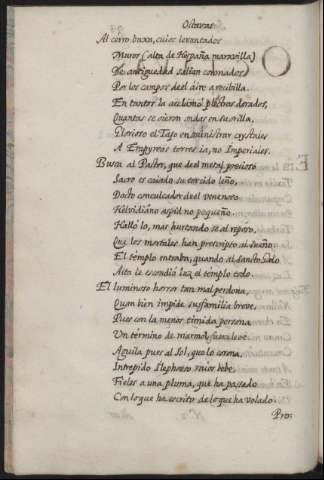 Octavas
Al cerro baxa, cuios levantados
Muros (alta de Hespaña maravilla)
De antiguedad salian coronados
Por los campos del aire a recibilla.
En tantos la aclamó plectros dorados,
Quantas se vieron ondas en su orilla,
Glorioso el Tajo en ministrar crystales
A Empyreas torres ia, no Imperiales.
Busca al Pastor, que del metal precioso
Sacro es caiado su torcido leño,
Docto conculcador del venenoso
Helvidiano aspid no pequeño.
Halló lo, mas hurtando se al reposo,
Que los mortales han prescripto al sueño,
El templo entraba, quando al sancto Godo
Alta le escondia luz el templo todo.
El luminoso horror tan mal perdona,
Quan bien impide su familia breve,
Pues con la menor timida persona
Un término de marmol fuera leve.
Aguila pues al Sol, que lo corona,
Intrepido Ilephonso raios bebe,
Fieles a una pluma, que ha passado
Con lo que ha escrito de lo que ha volado.
Pro: